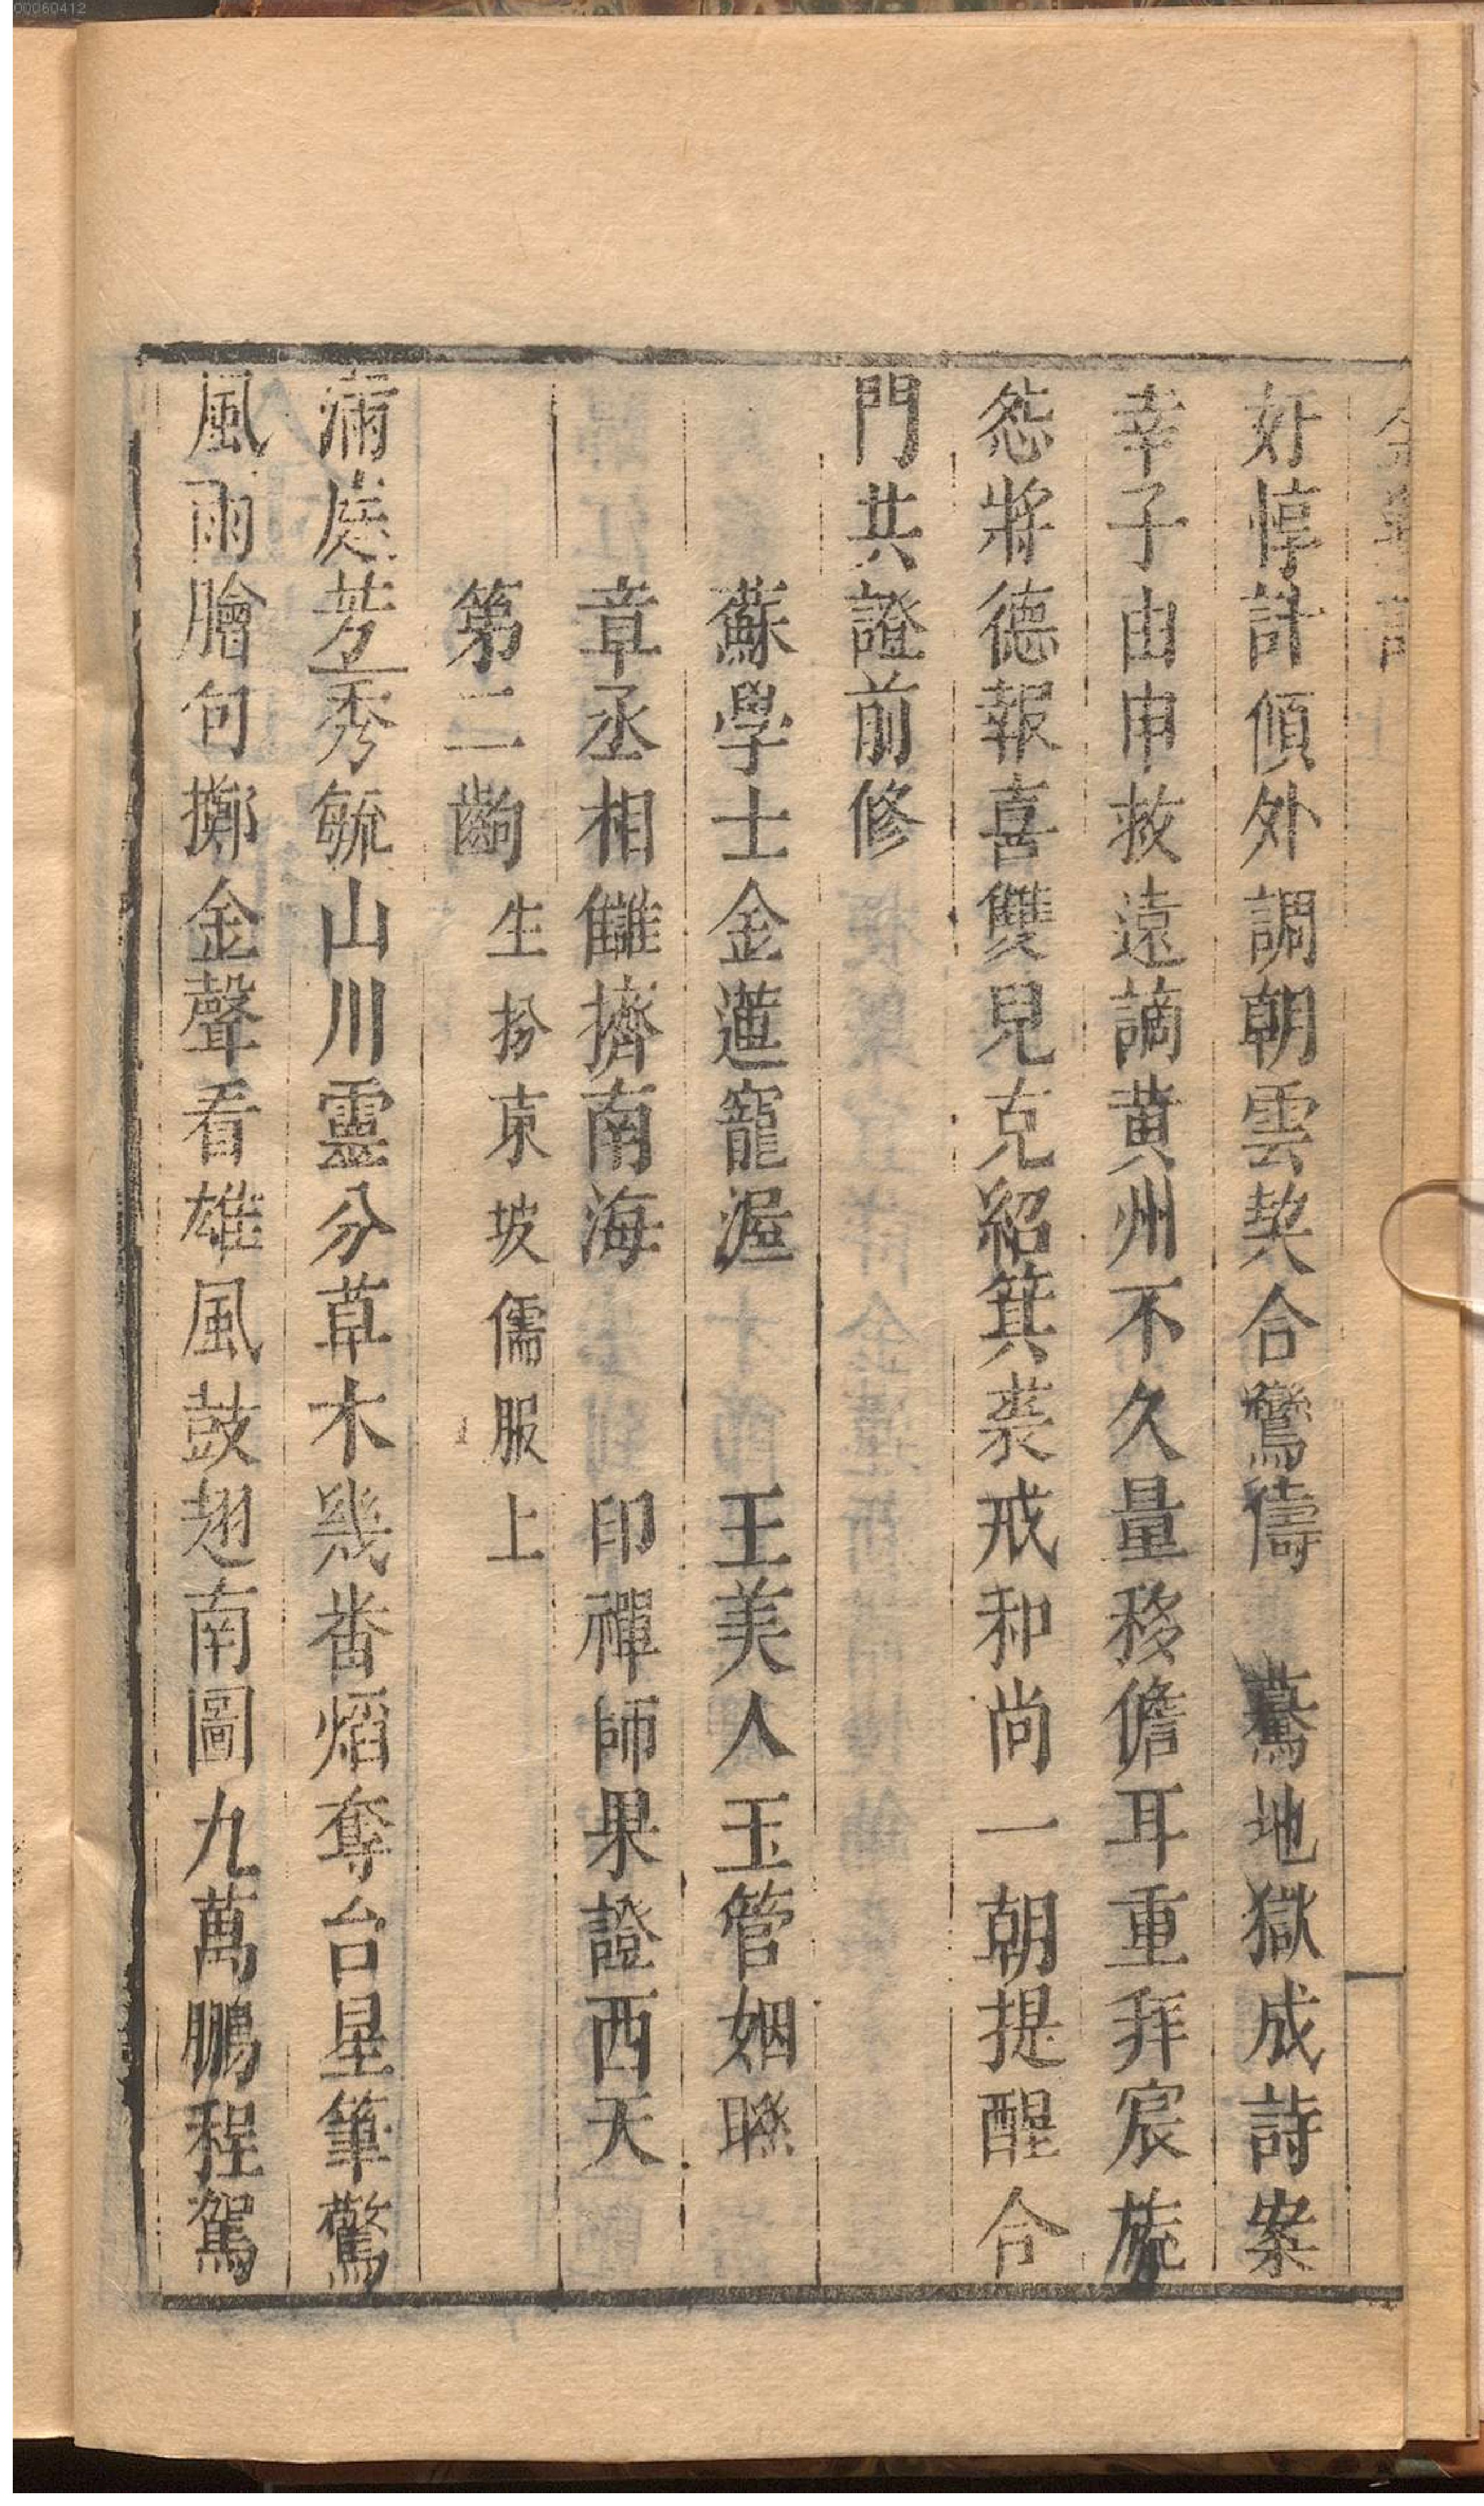 00060412
奸惇計傾外調朝雲契合鸞儔　驀地獄成詩案
幸子由申救遠謫黄州不久量移儋耳重拜宸旒
怨將德報喜雙兒克紹箕裘戒和尚一朝提醒合
門共證前修
蘇學士金蓮寵渥　王美人玉管姻聯
章丞相讎擠南海　印禪師果證西天
第二齣 生扮東坡儒服上
滿庭芳秀毓山川靈分草木幾畨熖奪台星筆驚
風雨膾句擲金聲看雄風鼓翅南圖九萬鵬程駕